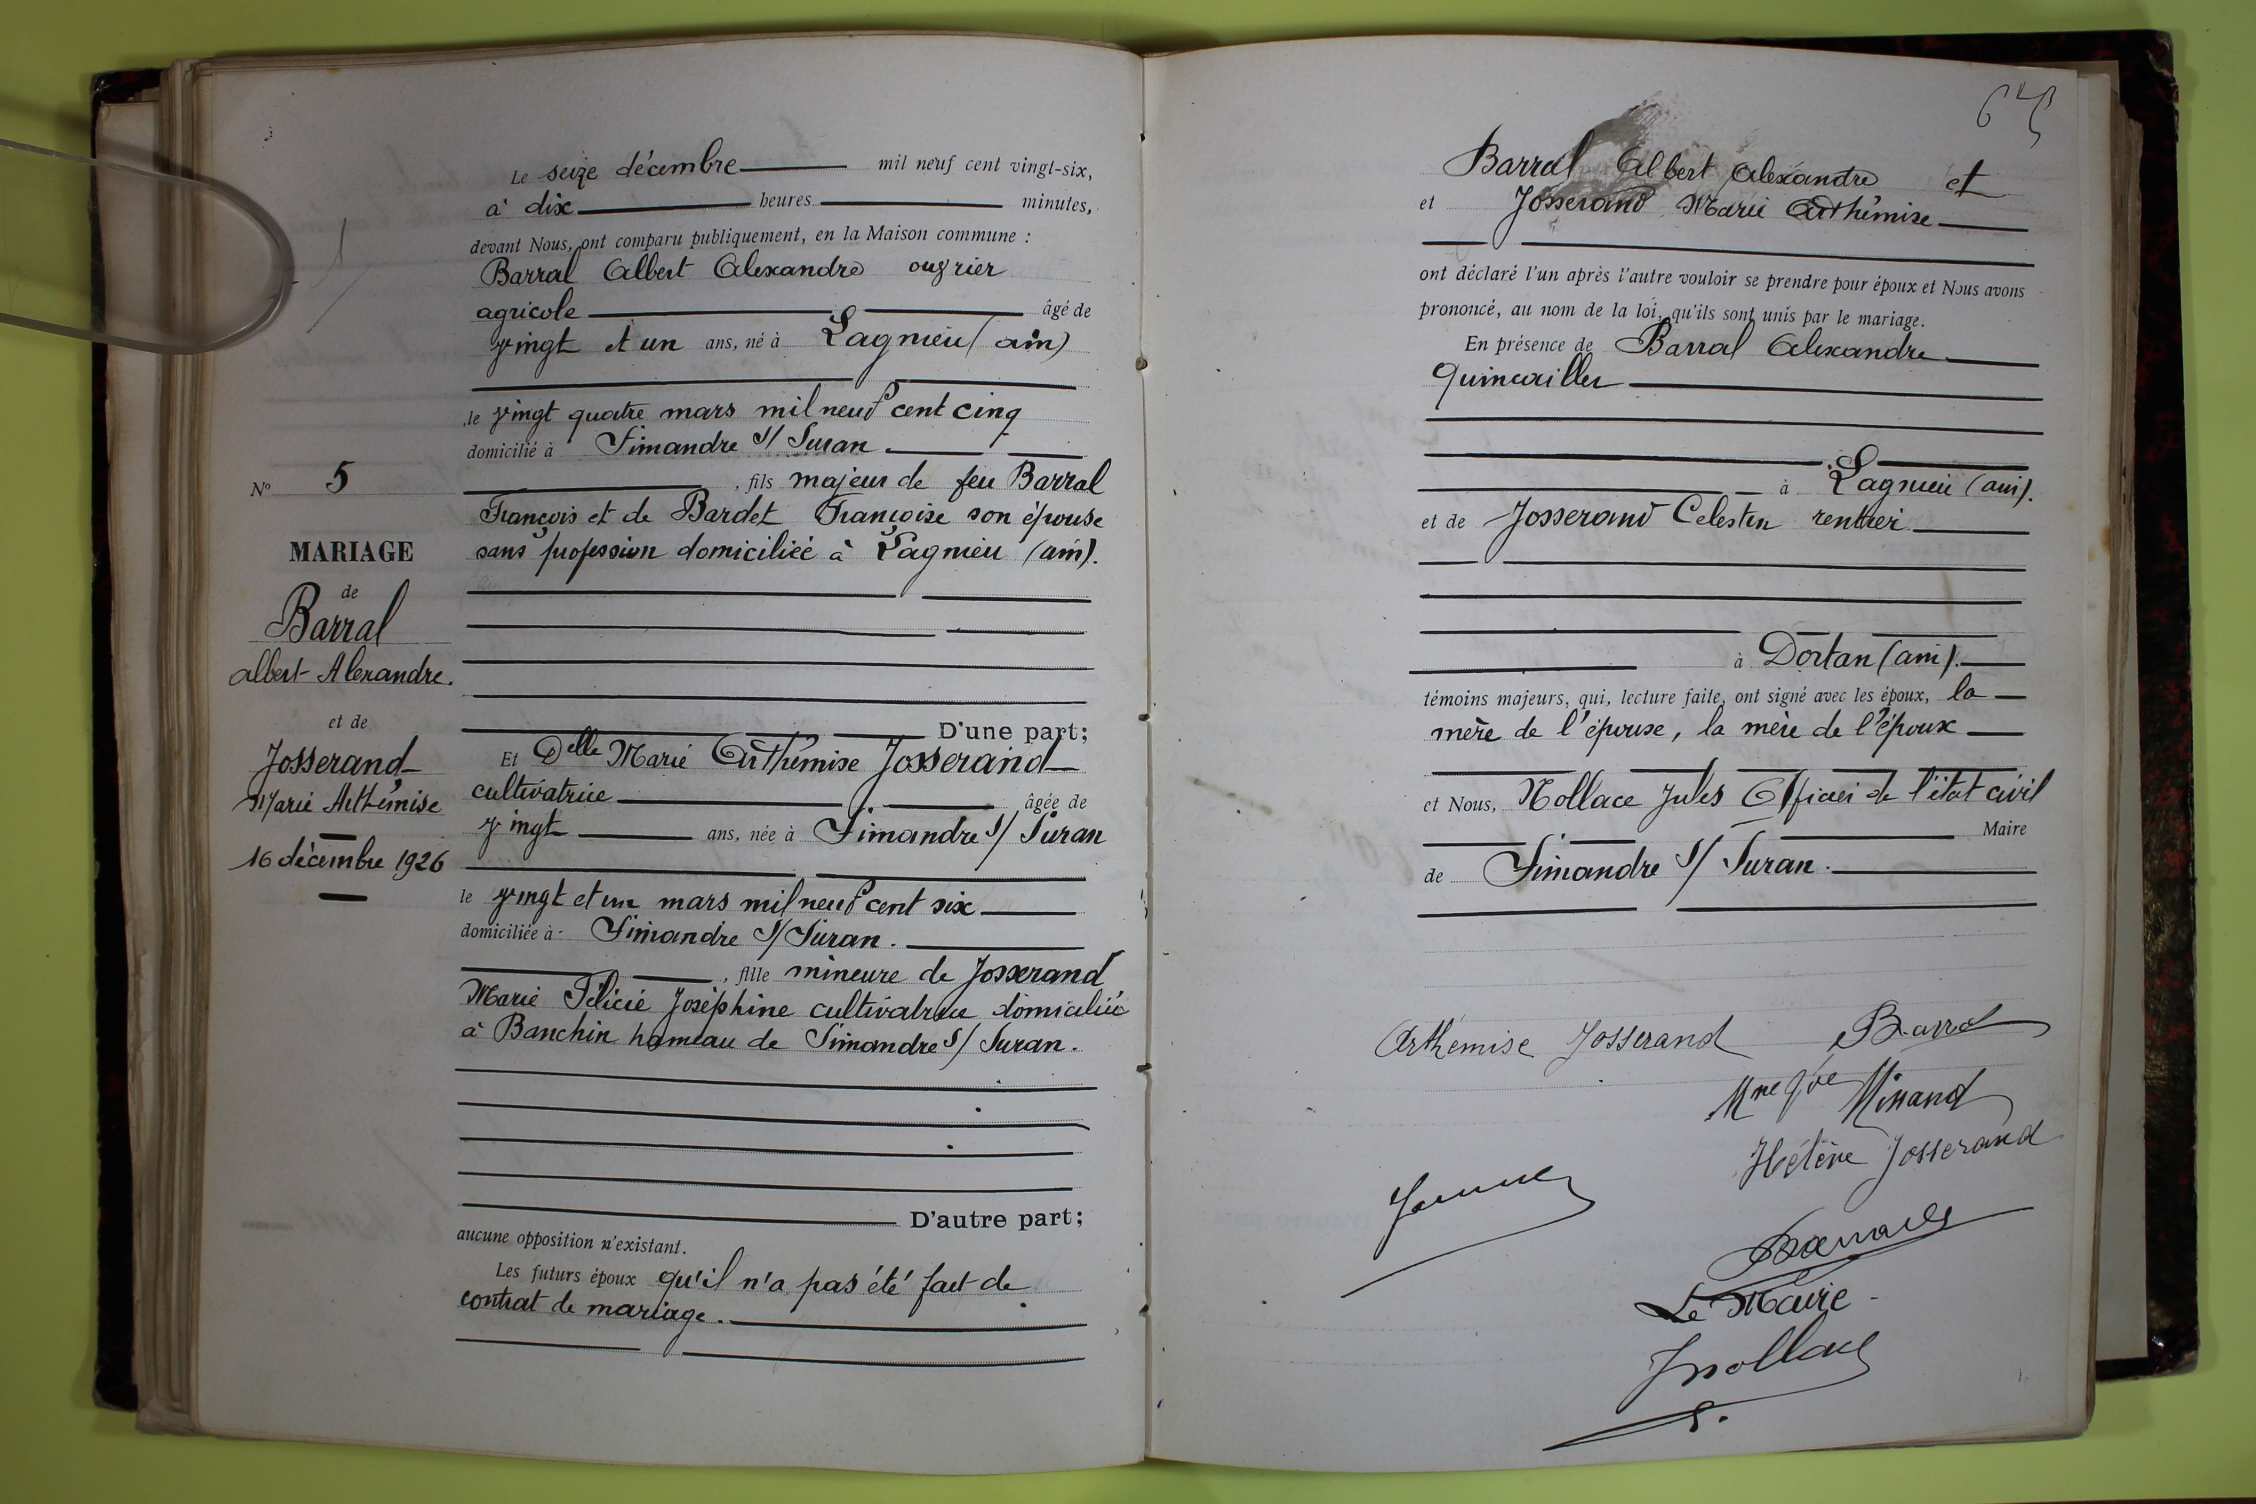 Le seize décembre mil neuf cent vingt-six,
à dix heures minutes,
devant Nous, ont comparu publiquement, en la Maison commune :
Barral Albert Alexandre ouvrier
agricole âgé de
vingt et un ans, né à Lagnieu (ain)
le vingt quatre mars mil neuf cent cinq
domicilié à Simandre s/ Suran
, fils majeur de feu Barral
François et de Bardet Françoise son épouse
sans profession domiciliée à Lagnieu (ain).
D'une part;
Et Delle Marie Arthémise Josserand
cultivatrice âgée de
vingt ans, née à Simandre s/ Suran
le vingt et un mars mil neuf cent six
domiciliée à Simandre s/ Suran.
, fille mineure de Josserand
Marie Félicie Joséphine cultivatrice domiciliée
à Banchin hameau de Simandre s/ Suran.
D'autre part;
aucune opposition n'existant.
Les futurs époux qu'il n'a pas été fait de
contrat de mariage.
N° 5
MARIAGE
de
Barral
albert-Alexandre.
et de
Josserand
Marie Arthémise
16 décembre 1926
65
Barral Albert Alexandre et
et Josserand Marie Arthémise
ont déclaré l'un après l'autre vouloir se prendre pour époux et Nous avons
prononcé, au nom de la loi, qu'ils sont unis par le mariage.
En présence de Barral Alexandre
Quincailler
à Lagnieu (ain).
et de Josserand Celestin rentier
à Dortan (ain).
témoins majeurs, qui, lecture faite, ont signé avec les époux, la
mère de l'épouse, la mère de l'époux
et Nous, Nollace Jules Officier de l'état civil
Maire
de Simandre s/ Suran.
Arthémise Josserand Barral
Mme Vve
Hélène Josserand
Le Maire
JNollace